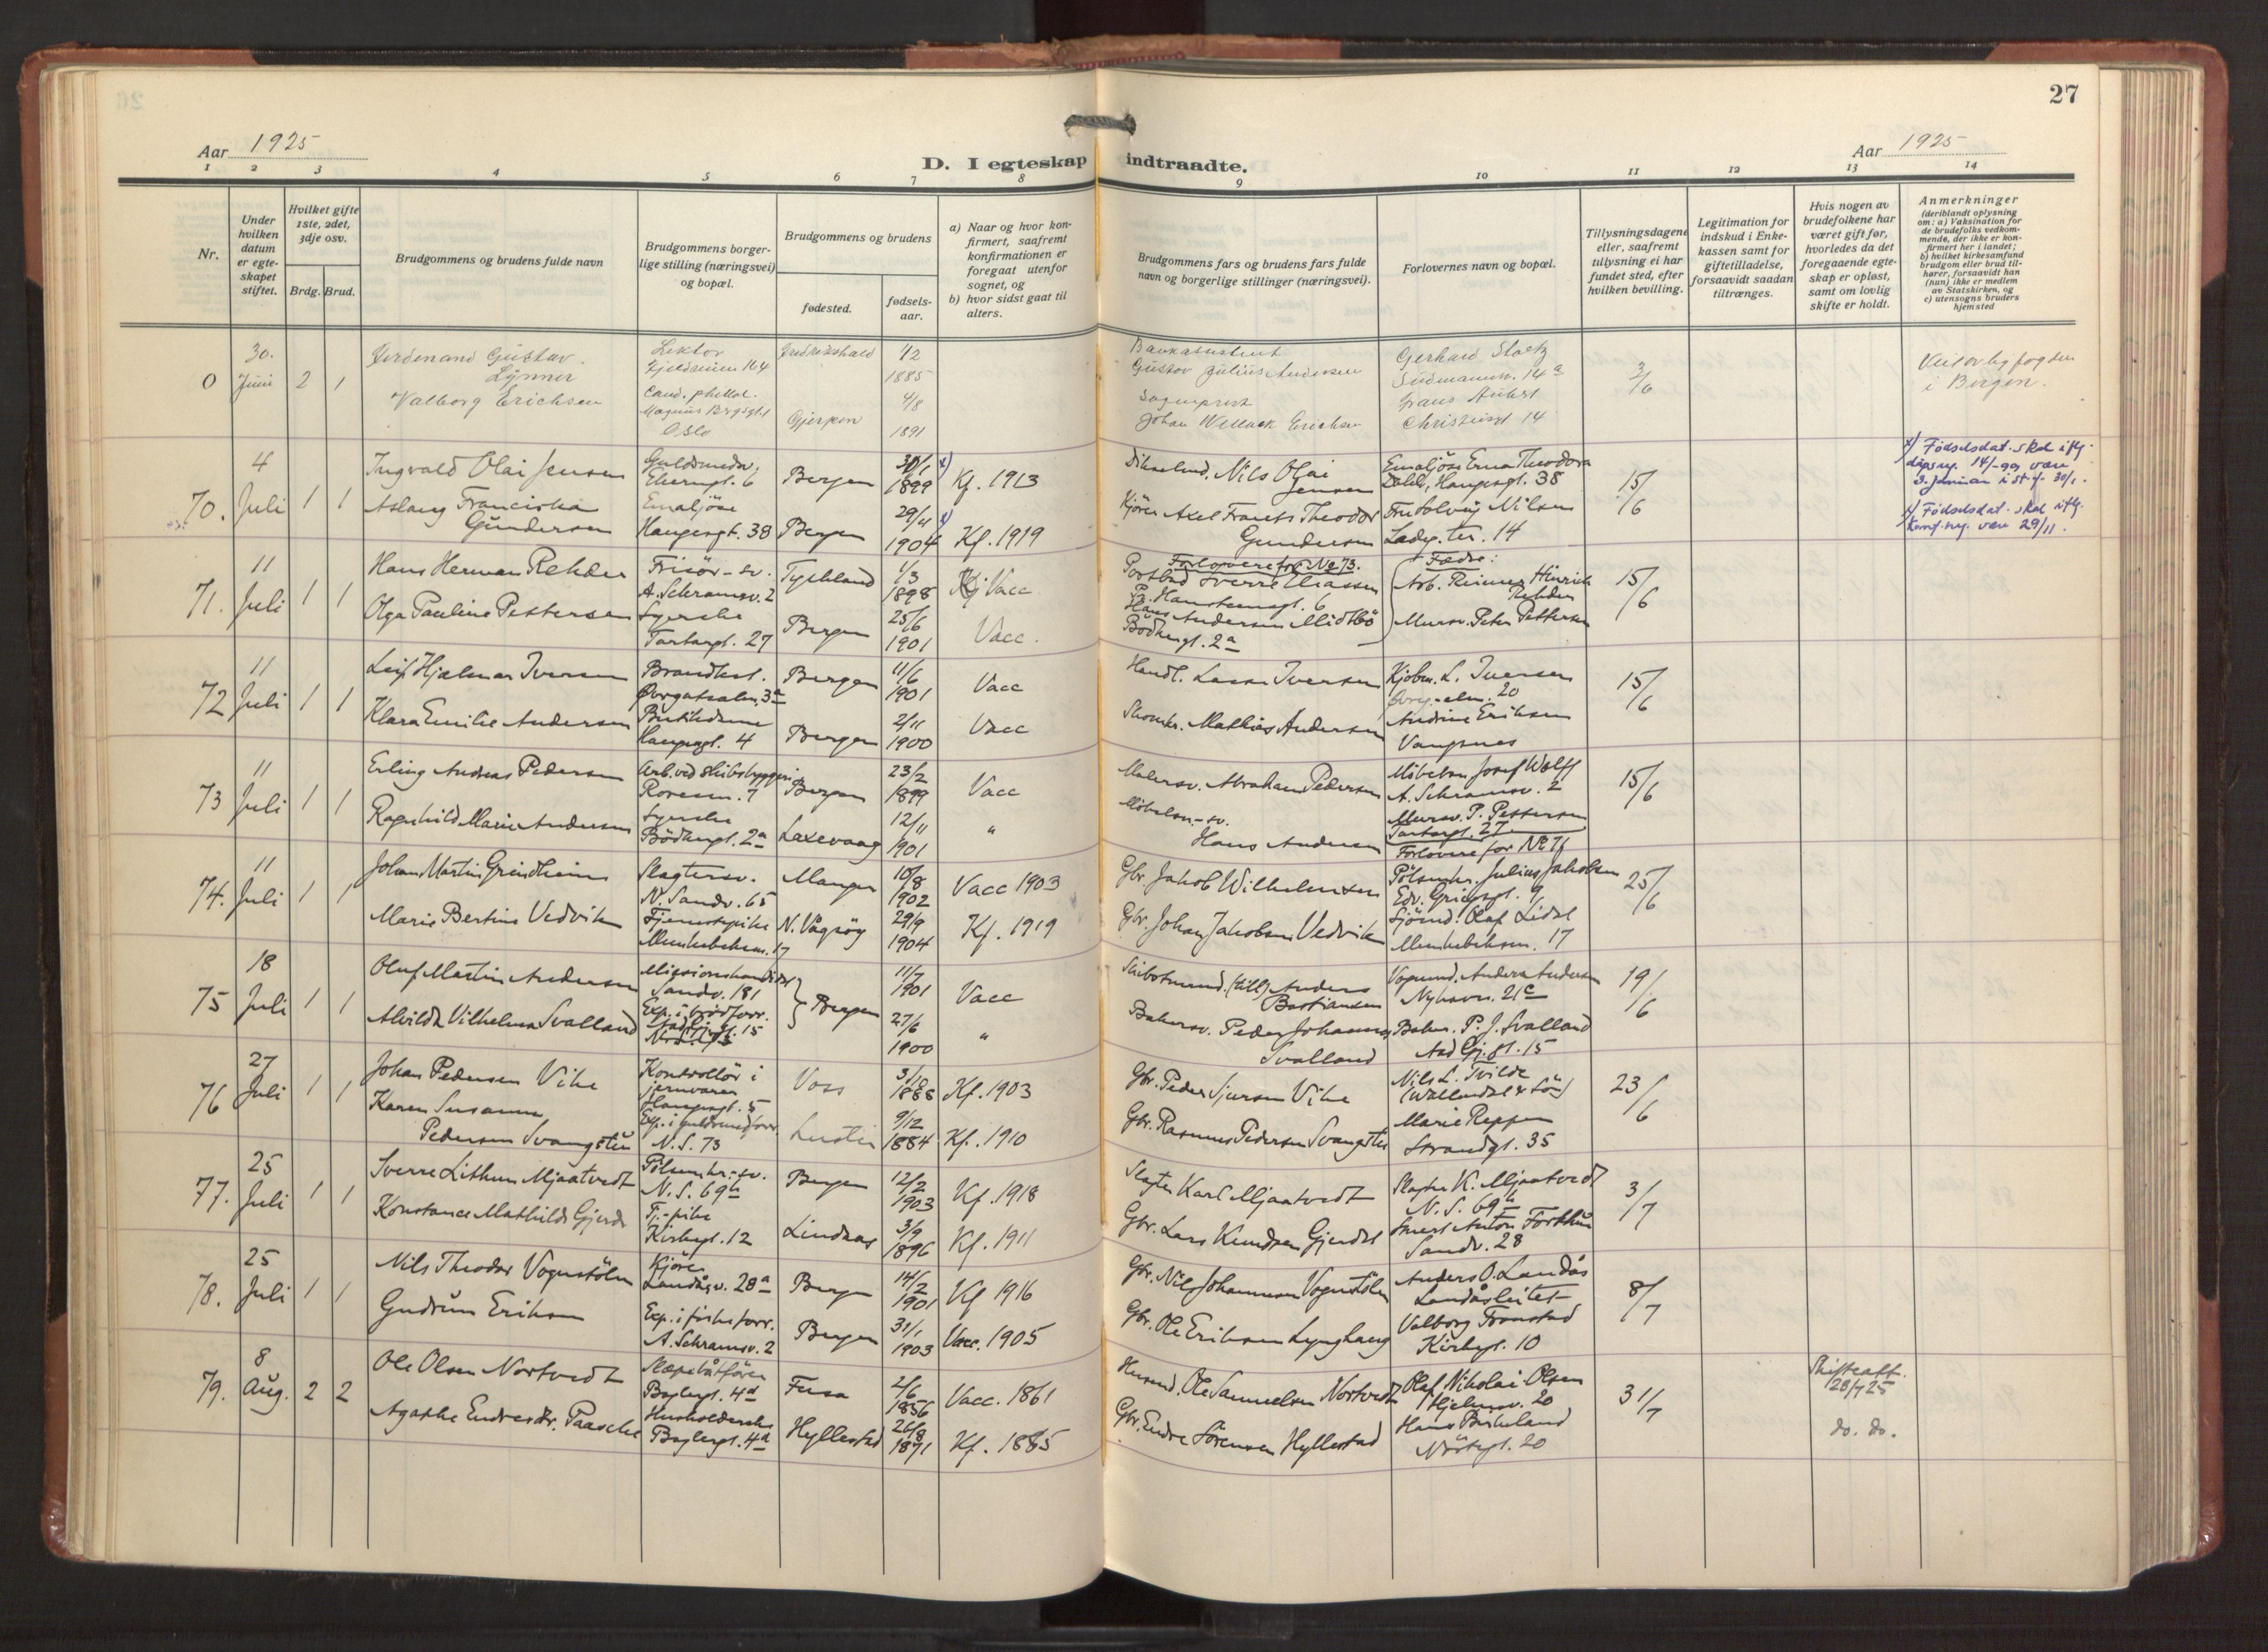 27
Aar 1925
D. I egteskap indtraadte.
Aar 1925
1 2 3 4 5 6 7 8 9 10 11 12 13 14
Nr.
Under hvilken datum er egte-skapet stiftet.
Hvilket gifte 1ste, 2det, 3dje osv.
Brdg. Brud.
Brudgommens og brudens fulde navn
Brudgommens borger-
lige stilling (næringsvei)
og bopæl.
Brudgommens og brudens
fødested.
fødsels-
aar.
a) Naar og hvor kon-
firmert, saafremt
konfirmationen er
foregaat utenfor
sognet, og
b) hvor sidst gaat til
alters.
Brudgommens fars og brudens fars fulde
navn og borgerlige stillinger (næringsvei).
Forlovernes navn og bopæl.
Tillysningsdagene
eller, saafremt
tillysning ei har
fundet sted, efter
hvilken bevilling.
Legitimation for
indskud i Enke-
kassen samt for
giftetilladelse,
forsaavidt saadan
tiltrænges.
Hvis nogen av
brudefolkene har
været gift før,
hvorledes da det
foregaaende egte-
skap er opløst,
samt om lovlig
skifte er holdt.
Anmerkninger
(deriblandt oplysning
om: a) Vaksination for
de brudefolks vedkom-
mende, der ikke er kon-
firmert her i landet;
b) hvilket kirkesamfund
brudgom eller brud til-
hører, forsaavidt han
(hun) ikke er medlem
av Statskirken, og
c) utensogns bruders
hjemsted
0 30. Juni 2 1
Ferdinand Gustav
Lynner
Valborg Erichsen
Lektor
Cand. philol.
Oslo
Fredrikshald
1885
Gjerpen 4/8
1891
Bankassistent
Gustav Julius Andersen
Sogneprest
Johan Erichsen
Gerhard
14a
Christiesgt 14
3/6
i Bergen.
70. 4 Juli 1 1
Ingvald Olai Jensen
Aslaug Franciska
Gundersen
Emaljöse
Haugesgt. 38
Bergen 30/1 x)
1899 Kf. 1913
Bergen 29/4 x)
1904 Kf. 1919
Nils Olai
Jensen
Kjörer Axel Frants Theodor
Gundersen
Emaljöse Erna Theodora
Haugesgt. 38
Fru Solveig Nilsen
Ladeg. ter. 14
15/6
x) Fødselsdat. skal iflg.
dåpsreg. 14/-99 være
3. januar i st. f. 30/1.
x) Fødselsdat. skal iflg.
konf.reg. være 29/11.
71. 11 Juli 1 1
Hans Herman Rehder
Olga Pauline Pettersen
Frisör-sv.
A. Schramsv. 2
Syerske
Tartargt. 27
Tyskland 1/3
1898 Vacc
Bergen 25/6
1901 Vacc.
Forlovere for No 73.
Postbud Sverre Eliassen
Hans Andersen Midtbö
Bödkergt. 2a
Fædre:
Arb. Reimer Hinrich
Rehder
Mursv. Peter Pettersen
15/6
72 11 Juli 1 1
Leif Hjalmar Iversen
Klara Emilie Andersen
Brandkst.
Øvregatsalm. 3a
Butikdame
Haugesgt. 4
Bergen 11/6
1901 Vacc
Bergen 2/11
1900 Vacc
Handl. Lasse Iversen
Skomkr. Mathias Andersen
Kjøbm. L. Iversen
Øvreg.-alm. 20
Andrine Eriksen
Vangsnes
15/6
73 11 Juli 1 1
Erling Andreas Pedersen
Ragnhild Marie Andersen
Arb. ved skibsbyggeri
Syerske
Bödkergt. 2a
Bergen 23/2
1899 Vacc
Laxevaag 12/11
1901 "
Malersv. Abraham Pedersen
Möbelsn.-sv.
Hans Andersen
Möbelsn Josef Wolff
A. Schramsv. 2
Mursv. P. Pettersen
Tartargt. 27
Forlovere for No 71
15/6
74. 11 Juli 1 1
Johan Martin Grindheim
Marie Bertine Vedvik
Slagtersv.
N. Sandv. 65
Tjenestepike
Munkebeksm. 17
Manger 10/8
1902 Vacc 1903
N. Vågsöy 29/9
1904 Kf. 1919
Gbr. Jakob Wilhelmsen
Gbr. Johan Jakobsen Vedvik
Pölsemkr. Julius Jakobsen
Edv. Griegsgt. 9
Sjömd. Olaf Lidal
Munkebeksm. 17
25/6
75 18 Juli 1 1
Oluf Martin Andersen
Alvilda Vilhelmine Svalland
Misionskandidat
Sandv. 181
Exp. i brödforr.
Bergen 11/7
1901 Vacc
27/6
1900 "
Skibstmmd. (till) Anders
Bastiansen
Bakersv. Peder Johannes
Svalland
Vognmd. Anders Andersen
Nyhavn. 21c
Baker. P. J. Svalland
Aad Gj. gt. 15
19/6
76 27 Juli 1 1
Johan Pedersen Vike
Karen Susanna
Pedersen Svangstu
Kontrollör i
jernvarer
Haugesgt. 5
Exp. i guldsmedforr.
N. S. 73
Voss 3/10
1888 Kf. 1903
Luster 9/12
1884 Kf. 1910
Gbr. Peder Sjursen Vike
Gbr. Rasmus Pedersen Svangstu
Nils L. Tvilde
(Wallendal & Sön)
Marie Reppen
Strandgt. 35
23/6
77. 25 Juli 1 1
Sverre Lithun Mjaatvedt
Konstance Mathilde Gjerde
Pölsemkr.-sv.
N. S. 69b
Tj.-pike
Kirkegt. 12
Bergen 12/2
1903 Kf. 1918
Lindaas 3/9
1896 Kf. 1911
Slagter Karl Mjaatvedt
Gbr. Lars Knudsen Gjerde
Slagter K. Mjaatvedt
N. S. 69b
Anton Forthun
Sandv. 28
3/7
78. 25 Juli 1 1
Nils Theodor Vognstölen
Gudrun Eriksen
Kjörer
Landåsv. 28a
Exp. i fiskeforr.
A. Schramsv. 2
Bergen 14/2
1901 Kf 1916
Bergen 31/1
1903 Vacc. 1905
Gbr. Nils Johannesen Vognstölen
Gbr. Ole Eriksen Lynghaug
Anders O. Landås
Landåsleitet
Valborg Fronstad
Kirkegt. 10
8/7
79. 8 Aug. 2 2
Ole Olsen Nortvedt
Agathe Endresdtr. Paasche
Slæpebåtförer
Baglergt. 4a
Husholderske
Baglergt. 4a
Fusa 2/6
1856 Vacc. 1861
Hyllestad 26/8
1871 Kf. 1885
Husmd. Ole Samuelsen Nortvedt
Gbr. Endre Sörensen Hyllestad
Olaf Nikolai Olsen
Hjelmsv. 20
Hans Birkeland
Nöstegt. 20
31/7
Skifteatt.
28/7 25
do. do.